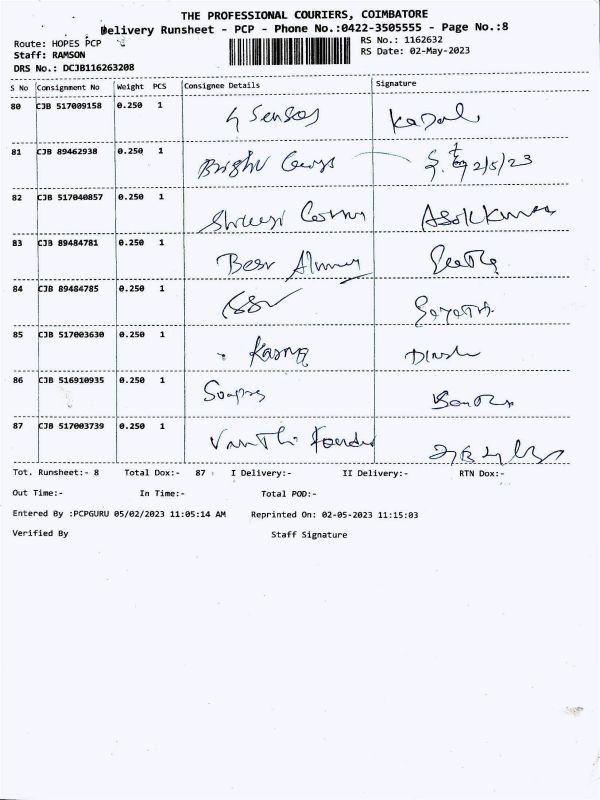 THE PROFESSIONAL COURIERS, COIMBATORE
Delivery Runsheet - PCP - Phone No.:0422-3505555 - Page No.:8
Route: HOPES PCP
RS No.: 1162632
Staff: RAMSON
RS Date: 02-May-2023
DRS No.: DCJB116263208
S No Consignment No Weight PCS Consignee Details Signature
80 CJB 517009158 0.250 1
81 CJB 89462938 0.250 1 2/5/23
82 CJB 517040857 0.250 1 Asokkumar
83 CJB 89484781 0.250 1
84 CJB 89484785 0.250 1
85 CJB 517003630 0.250 1
86 CJB 516910935 0.250 1
87 CJB 517003739 0.250 1
Tot. Runsheet:- 8 Total Dox:- 87 I Delivery:- II Delivery:- RTN Dox:-
Out Time:- In Time:- Total POD:-
Entered By :PCPGURU 05/02/2023 11:05:14 AM Reprinted On: 02-05-2023 11:15:03
Verified By Staff Signature